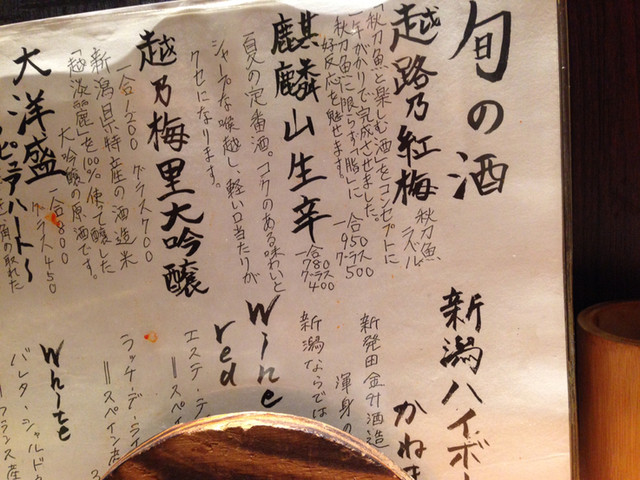 旬の酒
越路乃紅梅
秋刀魚
ラベル
「秋刀魚と楽しむ酒」をコンセプトに
二年がかりで完成させました。
秋刀魚に限らず「脂」に
好反応を魅せます。
一合950
グラス500
麒麟山生辛
一合780
グラス400
夏の定番酒。コクのある味わいと
シャープな喉越し、軽い口当たりが
クセになります。
越乃梅里大吟醸
一合1200 グラス700
新潟県特産の酒造米
「越淡麗」を100%使って醸した
大吟醸の原酒です。
大洋盛
一合800
グラス450
ピュアハート〜
角の取れた
新潟ハイボー
かねま
新発田 金升酒造
渾身の
新潟ならでは
Wine
red
エステ・
‖スペイ
ラッケ・デ・
‖スペイン
White
バレタ・シャルド
‖フランス産